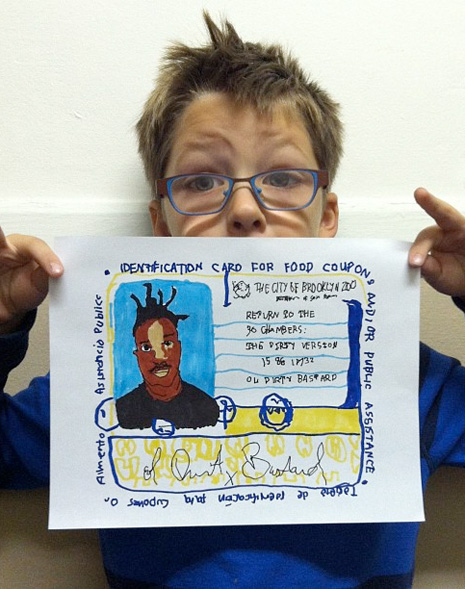 IDENTIFICATION CARD FOR FOOD COUPONS AND/OR PUBLIC ASSISTANCE
THE CITY OF BROOKLYN ZOO
RETURN TO THE
36 CHAMBERS:
THE DIRTY VERSION
OL DIRTY BASTARD
Ol Dirty Bastard
Tarjeta de identificación para Cupones O
Alimento Asistencia Publico